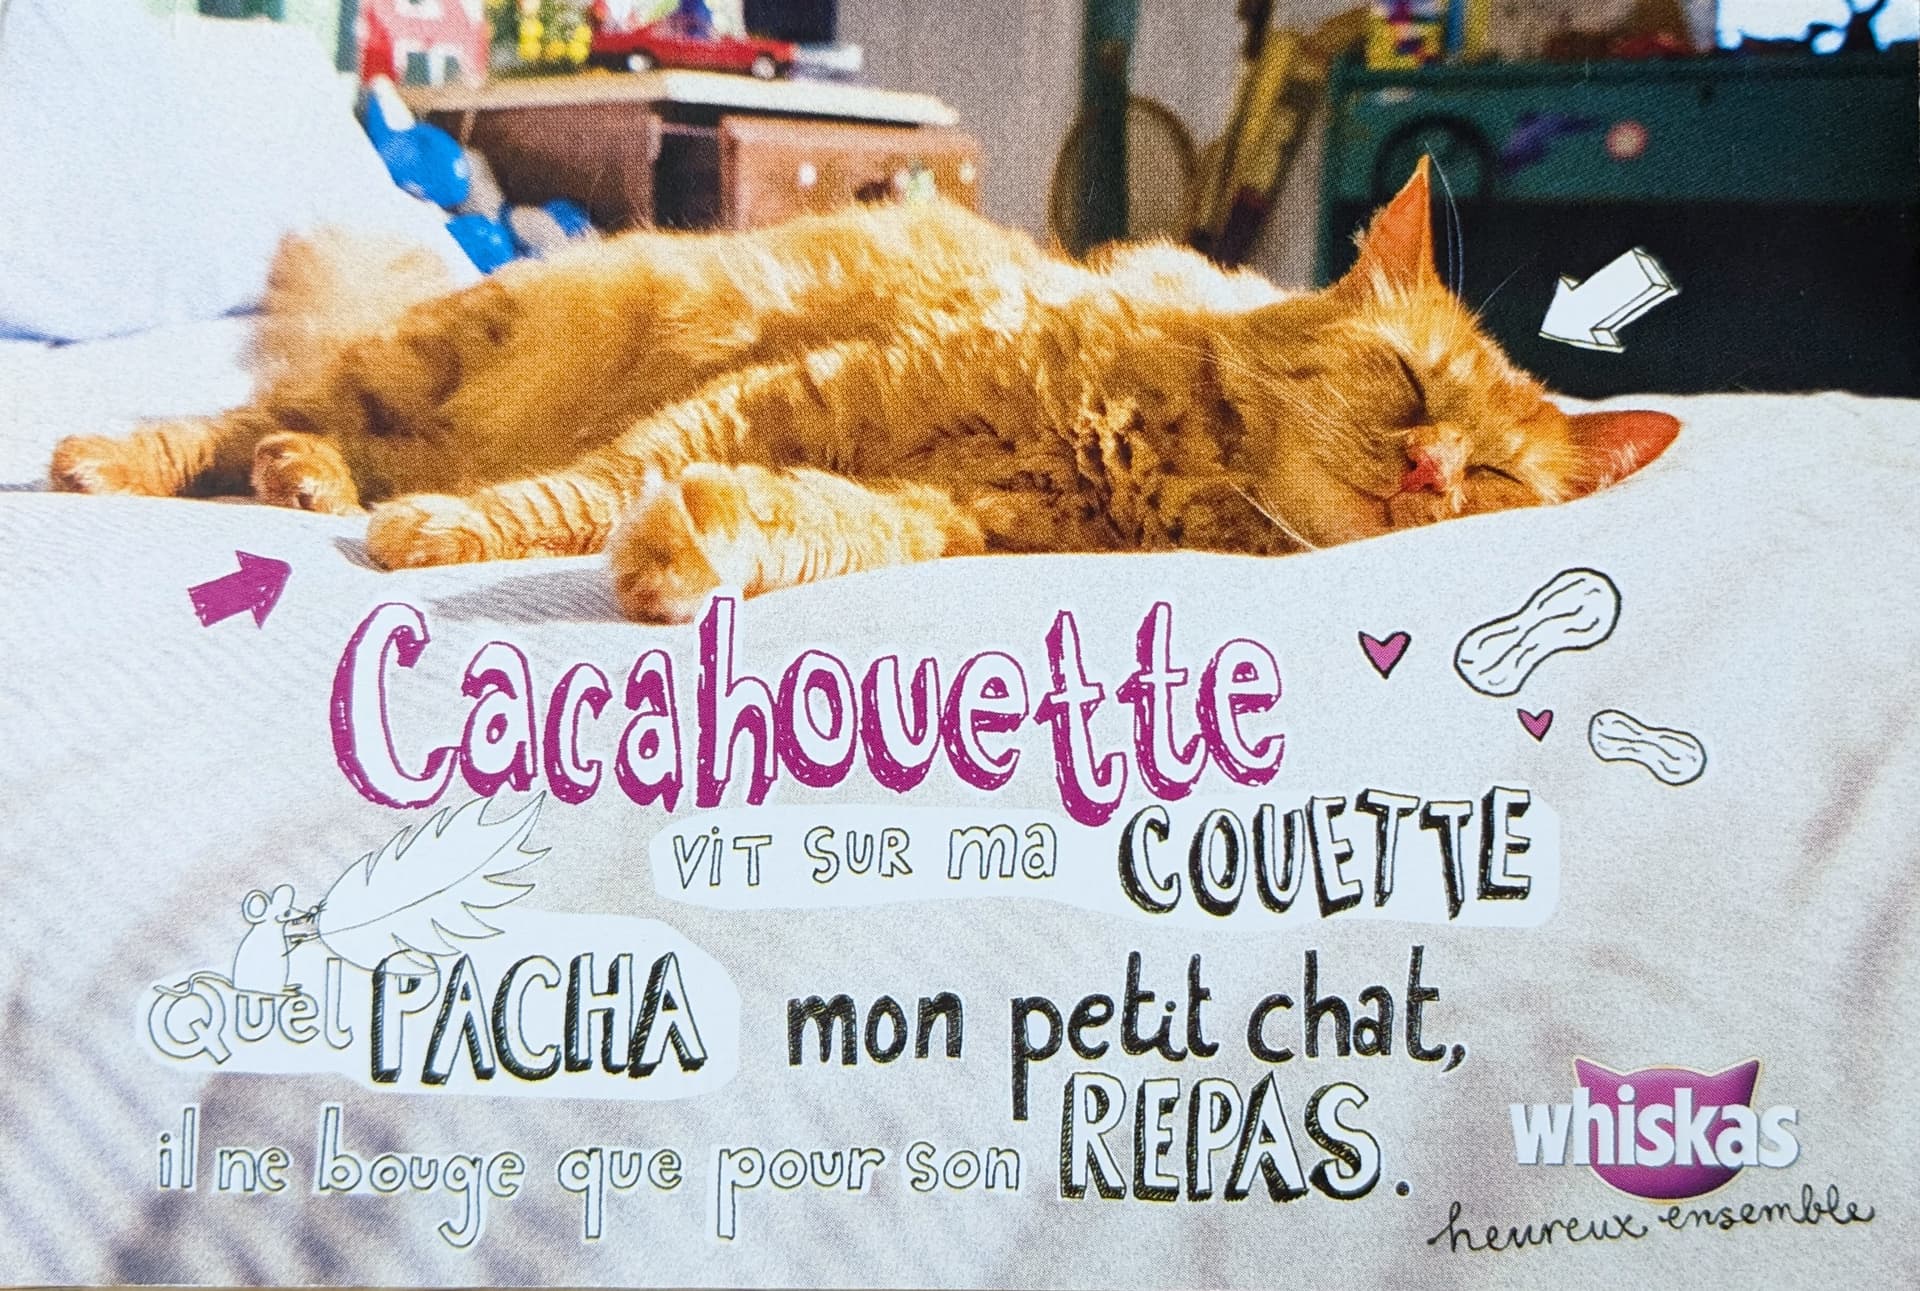 Cacahouette
ViT SUR ma COUETTE
Quel PACHA mon petit chat,
il ne bouge que pour son REPAS.
whiskas
heureux ensemble